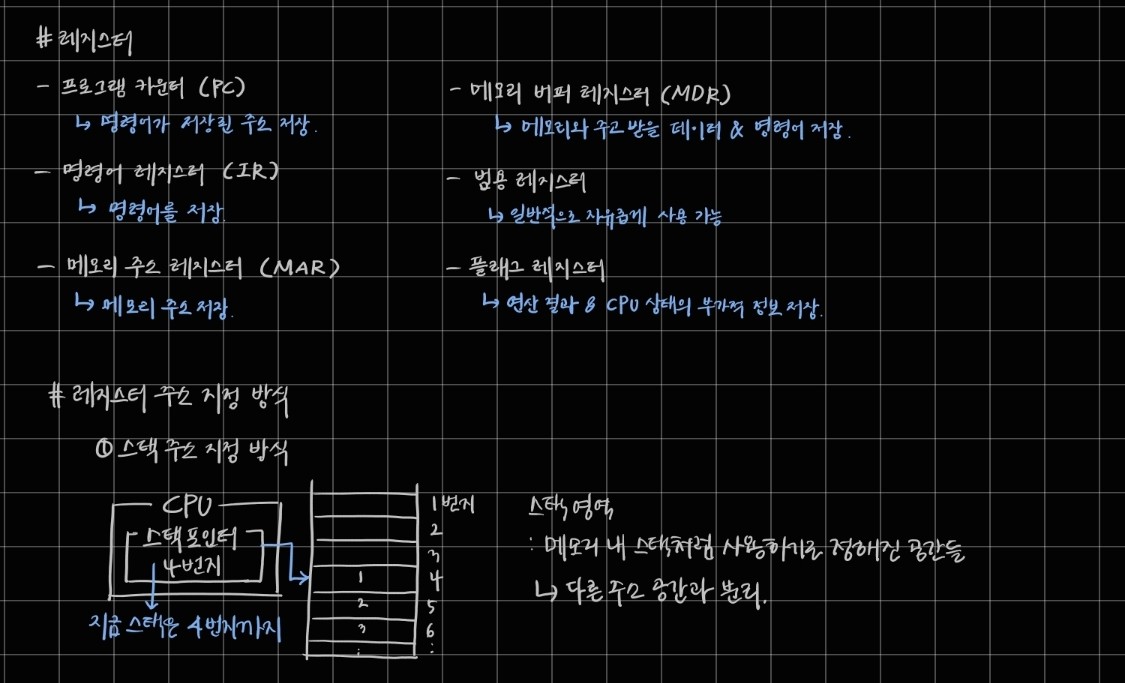 # 레지스터
- 프로그램 카운터 (PC)
↳ 명령어가 저장된 주소 저장.
- 명령어 레지스터 (IR)
↳ 명령어를 저장.
- 메모리 주소 레지스터 (MAR)
↳ 메모리 주소 저장.
- 메모리 버퍼 레지스터 (MDR)
↳ 메모리와 주고 받을 데이터 & 명령어 저장.
- 범용 레지스터
↳ 일반적으로 자유롭게 사용 가능
- 플래그 레지스터
↳ 연산 결과 & CPU 상태의 부가적 정보 저장.
# 레지스터 주소 지정 방식
① 스택 주소 지정 방식
CPU
스택 포인터
4번지
지금 스택은 4번지까지
1번지
2
3
1 4
2 5
3 6
: :
스택 영역
: 메모리 내 스택처럼 사용하기로 정해진 공간들
↳ 다른 주소 공간과 분리.